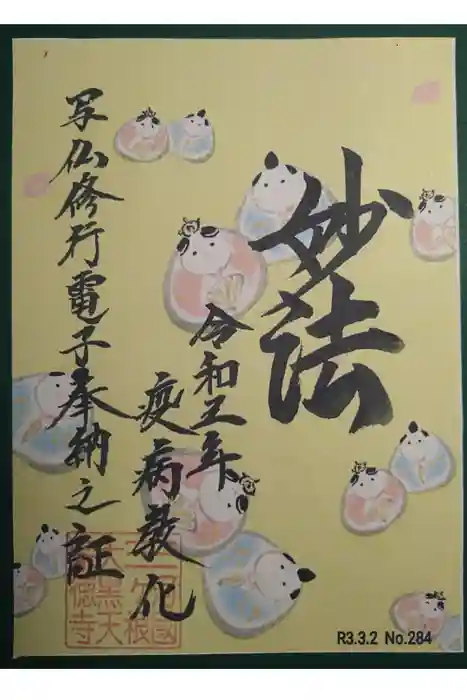 妙法
令和三年
疫病教化
写仏修行電子奉納之証
R3.3.2 No.284